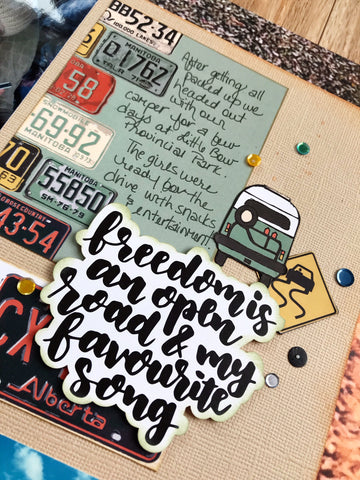 BB52-34
100,000 LAKES
MANITOBA
61762
58
SNOWMOBILE
69-92
MANITOBA
70
MANITOBA
55850
43-54
After getting all
packed up we
headed out
with our
camper for a few
days at Little Bow
Provincial Park.
The girls were
ready for the
drive with snacks
& entertainment.
freedom is
an open
road & my
favourite
song
CX
Alberta